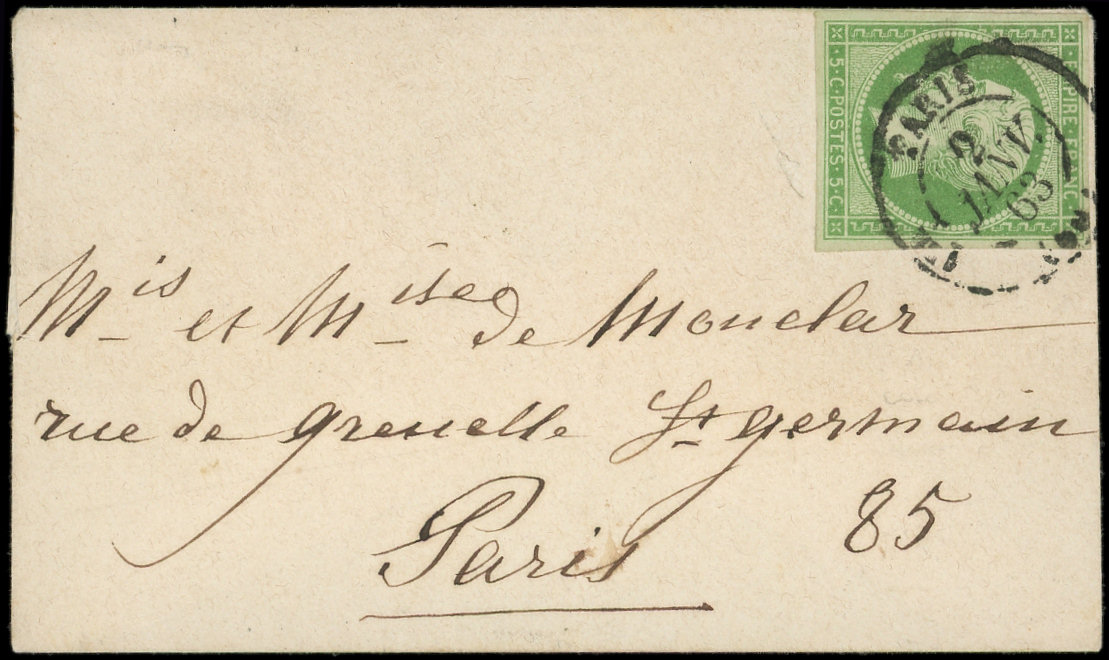 5·C·POSTES·5·C
EMPIRE·FRANC
PARIS
2
JANV.
63
Mis et Mise de Monclar
rue de grenelle St germain
85
Paris